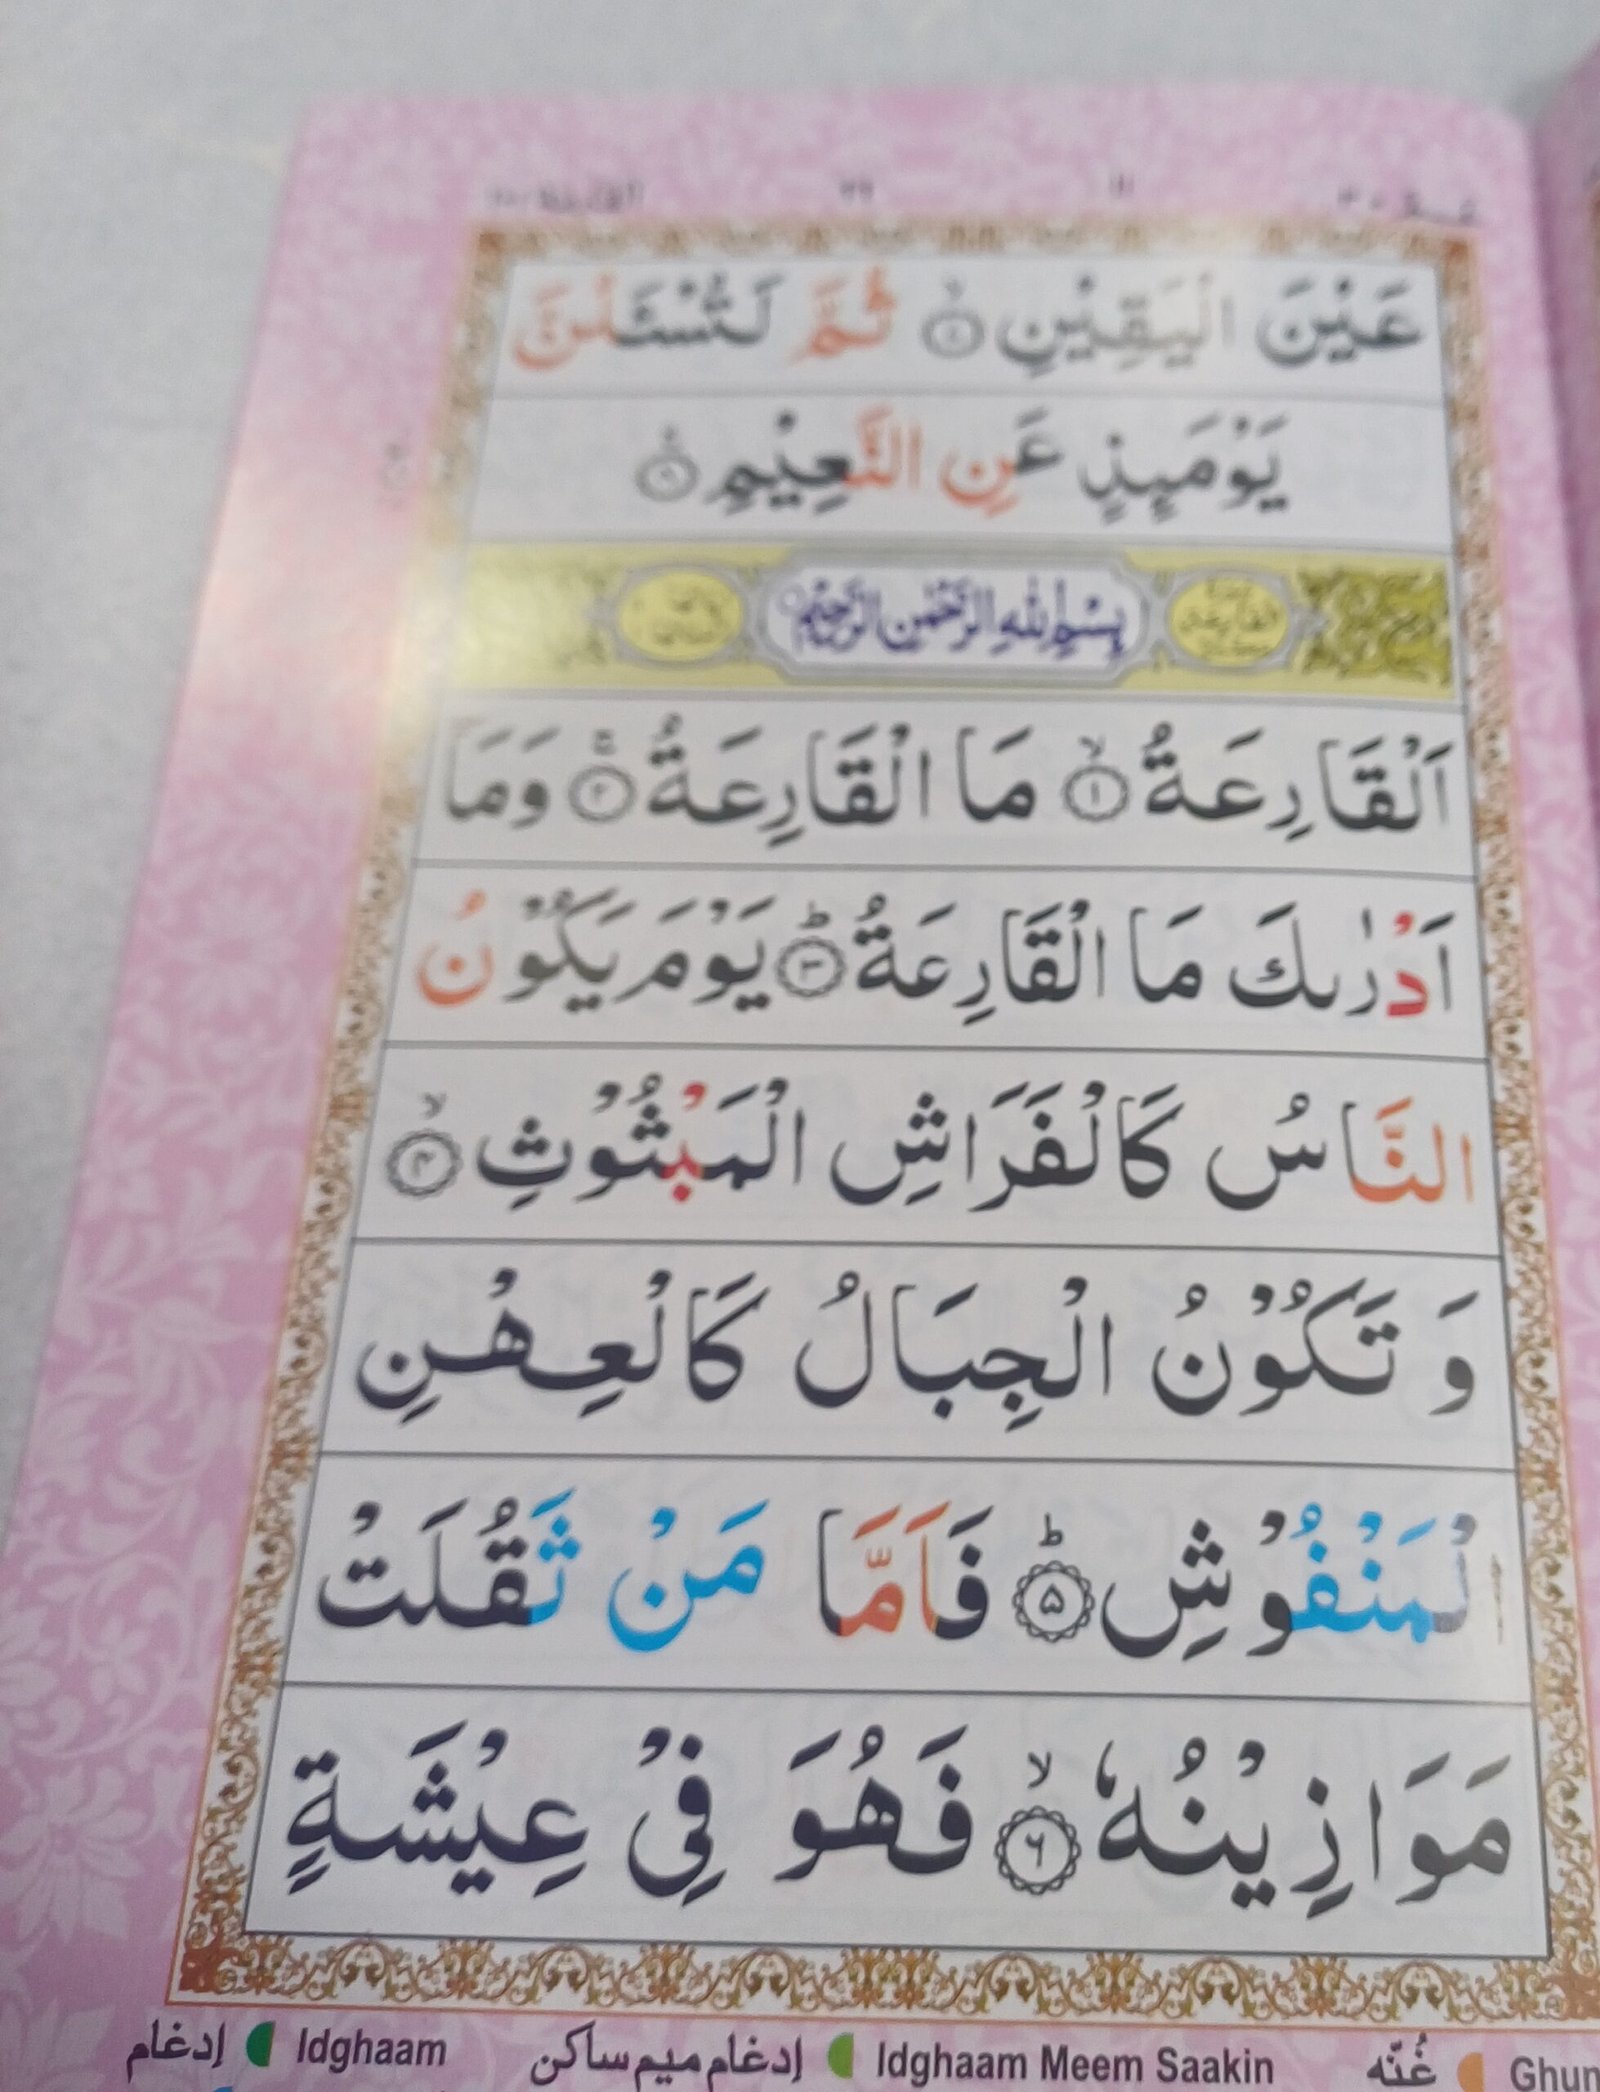 عَيْنَ الْيَقِيْنِ ۝ ثُمَّ لَتُسْـَٔلُنَّ
يَوْمَىِٕذٍ عَنِ النَّعِيْمِ ۝
بِسْمِ اللّٰهِ الرَّحْمٰنِ الرَّحِيْمِ
اَلْقَارِعَةُ ۙ۝۱ مَا الْقَارِعَةُ ۚ۝۲ وَمَاۤ
اَدْرٰىكَ مَا الْقَارِعَةُ ؕ۝۳ يَوْمَ يَكُوْنُ
النَّاسُ كَالْفَرَاشِ الْمَبْثُوْثِ ۙ۝۴
وَ تَكُوْنُ الْجِبَالُ كَالْعِهْنِ
الْمَنْفُوْشِ ؕ۝۵ فَاَمَّا مَنْ ثَقُلَتْ
مَوَازِيْنُهٗ ۙ۝۶ فَهُوَ فِيْ عِيْشَةٍ
إدغام Idghaam إدغام ميم ساكن Idghaam Meem Saakin غُنّه Ghun